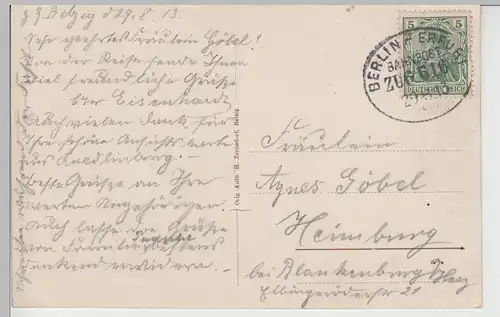 z. Z. Belzig d 29. 8. 13.
Sehr geehrtes Fräulein Göbel!
Von der Reise sende Ihnen
viel freundliche Grüße
Eisenhardt
Auch vielen Dank für
Ihre schöne Ansichtskarte
aus Quedlinburg.
Beste Grüße an Ihre
werten Angehörigen
Auch lasse die Grüße
von Familie
dankend erwidern.
Orig. Aufn. R. Zernsdorf, Belzig
BERLIN ERFURT
BAHNPOST
ZUG 616
5 5
DEUTSCHES REICH
Fräulein
Agnes Göbel
Heimburg
bei Blankenburg Harz
Elbingeröderstr 21